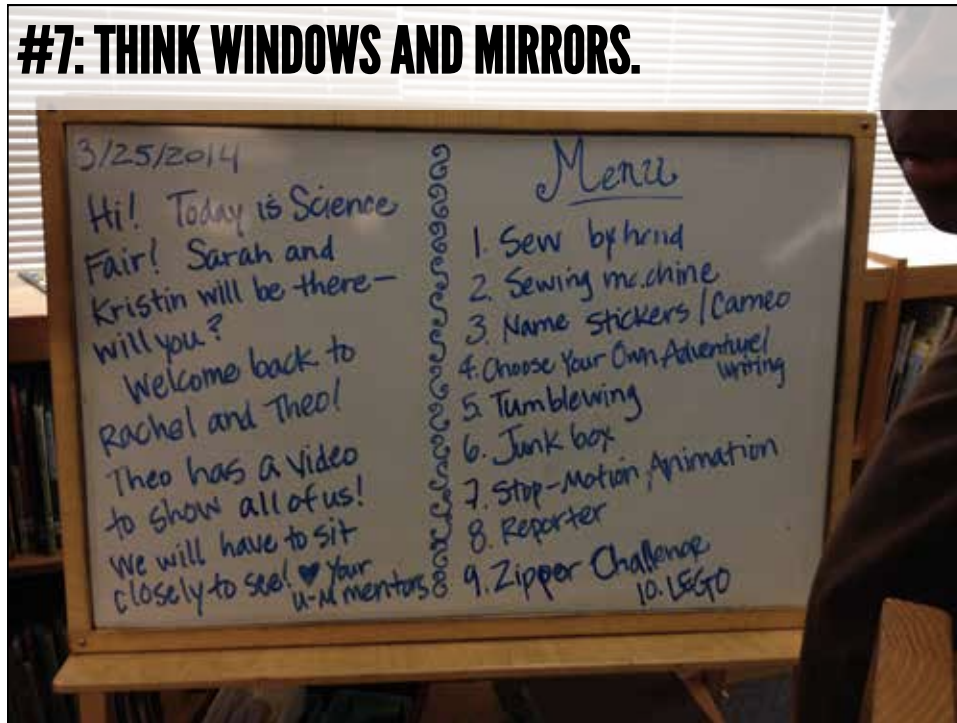 #7: THINK WINDOWS AND MIRRORS.
3/25/2014
Hi! Today is Science
Fair! Sarah and
Kristin will be there—
will you?
Welcome back to
Rachel and Theo!
Theo has a video
to show all of us!
We will have to sit
closely to see! ♥ Your
U-M mentors
Menu
1. Sew by hand
2. Sewing machine
3. Name stickers/Cameo
4. Choose Your Own Adventure/
writing
5. Tumblewing
6. Junk box
7. Stop-Motion Animation
8. Reporter
9. Zipper Challenge
10. LEGO